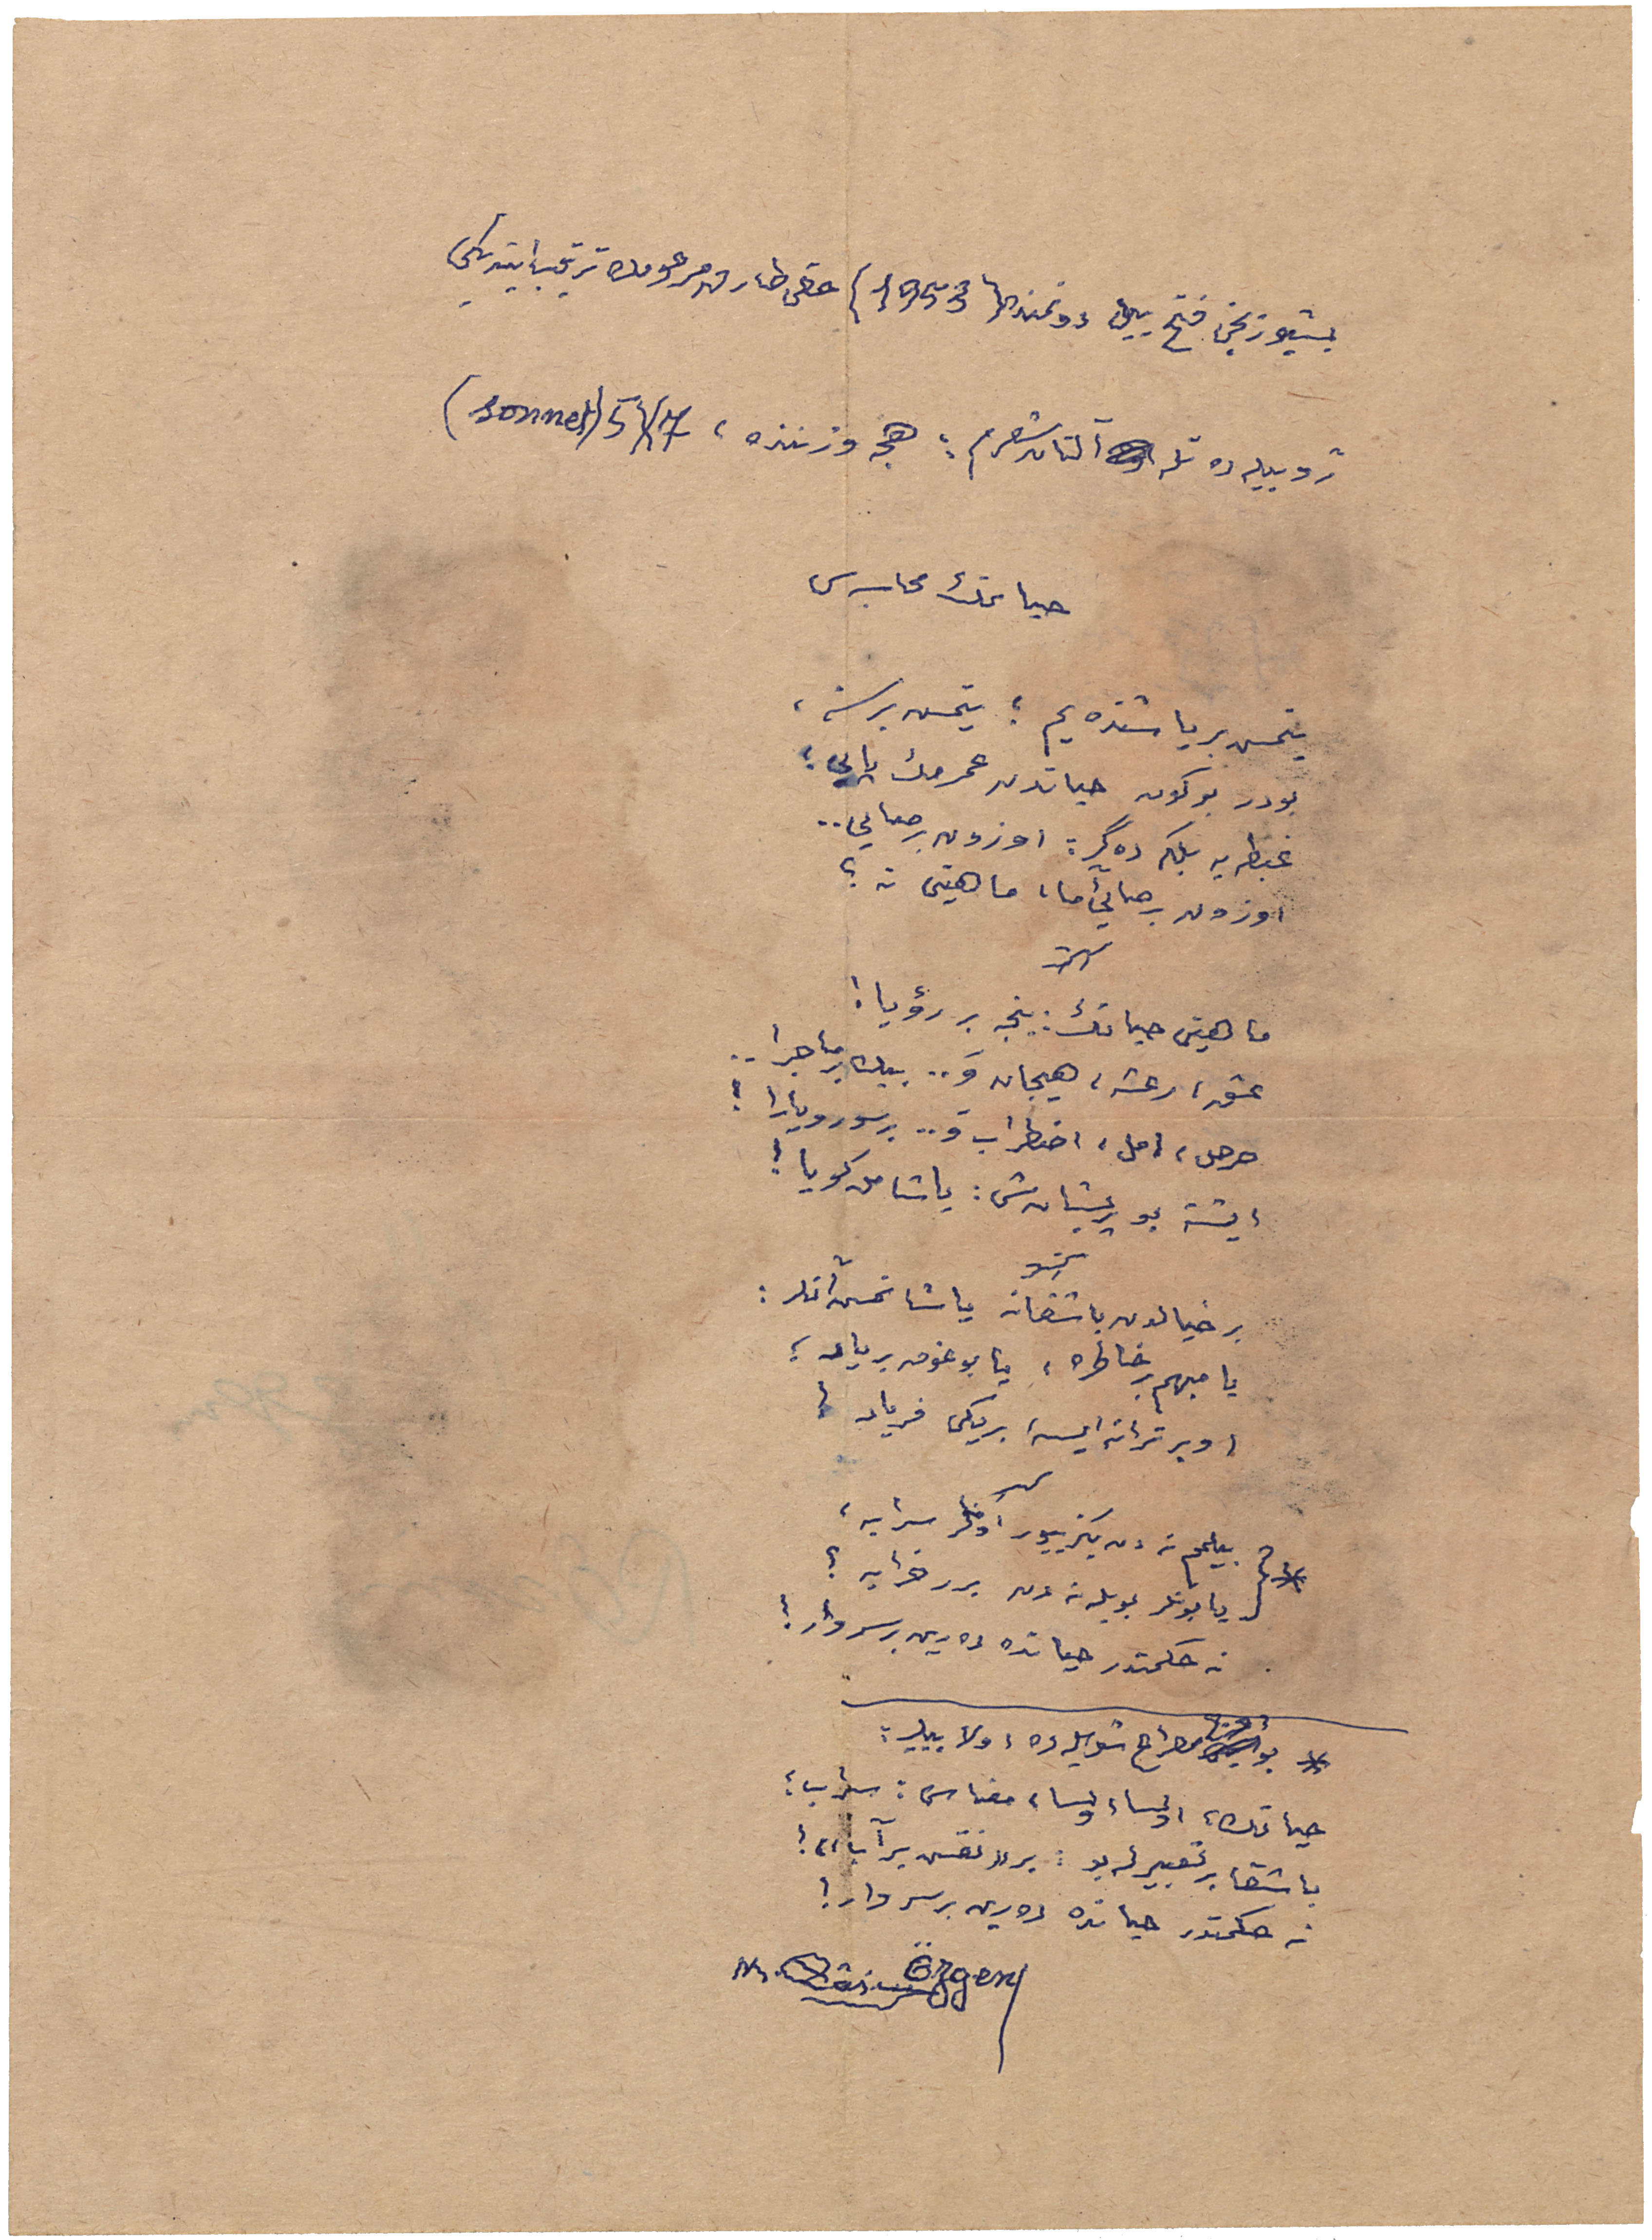 بشیوزنجی فتح ییلی دونمنده (1953) حقی طارق مرحومك ترتیب ایتدیکی
ژوبیله ده آلتان شعرم : هجه وزننده ، 7/4 (sonnet)
حیاتمك محاسبه سی
یتمش بر یاشنده یم ؛ یتمش بر سنه ،
بودر بوکون حیاتدن عمرمك پایی ؛
غبطه یه بلکه ده گر : اوزون بر صایی ..
اوزون بر صایی أما ، ماهیتی نه ؟
ماهیتی حیاتك : نیجه بر رؤیا !
عشق ، رعشه ، هیجان و .. بیك بر ماجرا ..
حرص ، امل ، اضطراب و .. بر سورو یارا !
ایشته بو پریشان شی : یاشامق گویا !
بر خیالدن باشقا نه یاشانمش آنلر :
یا مبهم بر خاطره ، یا بوغوق بر یاد ؛
او بر ترانه ایسه ، بریکی فریاد !
* بیلمم نه دن بکزییور اوفقلر سرابه ،
یا بونلر بویله نه دن برر خرابه ؟
نه حکمتدر حیاتده ده رین بر سر وار !
* بو مصراع شویله ده اولا بیلیر :
حیاتك ، اولسا اولسا ، معناسی : سراب ؛
باشقا بر تعبیرله بو : بر « نقش بر آب » !
نه حکمتدر حیاتده ده رین بر سر وار !
Özgen